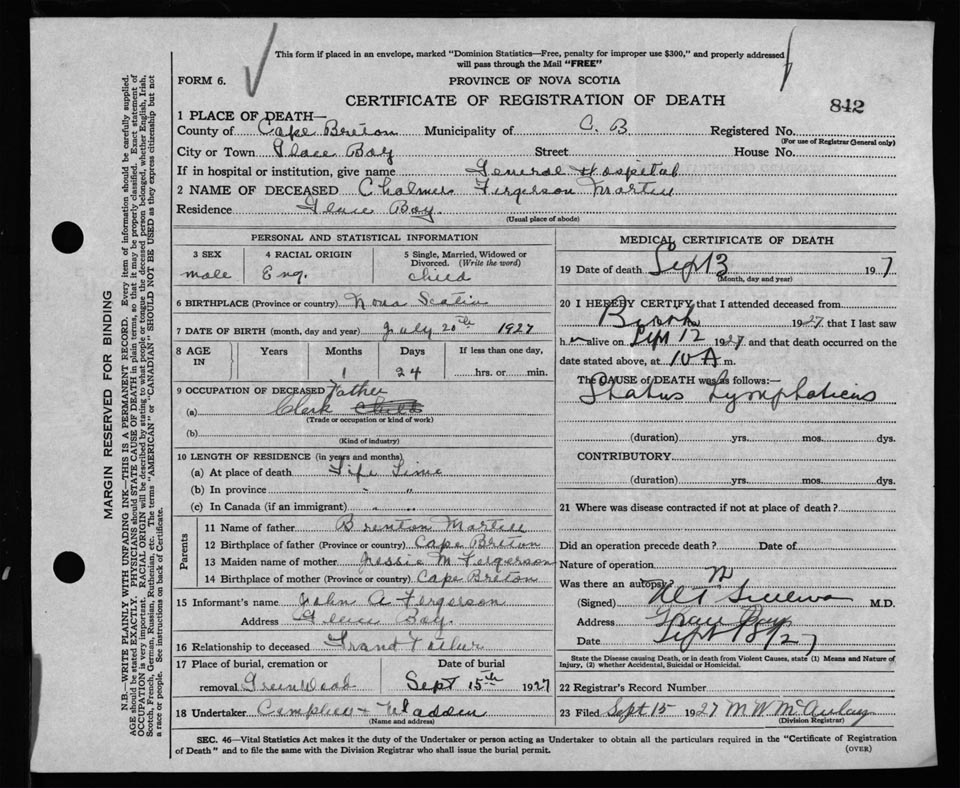 This form if placed in an envelope, marked "Dominion Statistics—Free, penalty for improper use $300," and properly addressed
will pass through the Mail "FREE"
FORM 6. PROVINCE OF NOVA SCOTIA
CERTIFICATE OF REGISTRATION OF DEATH 842
1 PLACE OF DEATH—
County of Cape Breton Municipality of C. B. Registered No.
(For use of Registrar General only)
City or Town Glace Bay Street House No.
If in hospital or institution, give name General Hospital
2 NAME OF DECEASED Chalmers Fergerson Martell
Residence Glace Bay.
(Usual place of abode)
PERSONAL AND STATISTICAL INFORMATION
3 SEX
male
4 RACIAL ORIGIN
Eng.
5 Single, Married, Widowed or
Divorced. (Write the word)
child
6 BIRTHPLACE (Province or country) Nova Scotia
7 DATE OF BIRTH (month, day and year) July 20th 1927
8 AGE IN Years Months Days If less than one day,
1 24 hrs. or min.
9 OCCUPATION OF DECEASED Father
(a) Clerk Child
(Trade or occupation or kind of work)
(b)
(Kind of industry)
10 LENGTH OF RESIDENCE (in years and months)
(a) At place of death Life Time
(b) In province " "
(c) In Canada (if an immigrant) " "
Parents
11 Name of father Brenton Martell
12 Birthplace of father (Province or country) Cape Breton
13 Maiden name of mother Jessie M Fergerson
14 Birthplace of mother (Province or country) Cape Breton
15 Informant's name John A Fergerson
Address Glace Bay.
16 Relationship to deceased Grand Father
17 Place of burial, cremation or Date of burial
removal GreenWood Sept 15th 1927
18 Undertaker Madden
(Name and address)
MEDICAL CERTIFICATE OF DEATH
19 Date of death Sept 13 1927
(Month, day and year)
20 I HEREBY CERTIFY that I attended deceased from
Birth 1927 that I last saw
h m alive on Sept 12 1927 and that death occurred on the
date stated above, at 10 A m.
The CAUSE of DEATH was as follows:—
Status Lymphaticus
(duration) yrs. mos. dys.
CONTRIBUTORY
(duration) yrs. mos. dys.
21 Where was disease contracted if not at place of death?
Did an operation precede death? Date of
Nature of operation
Was there an autopsy? N
(Signed) M.D.
Address Glace Bay
Date Sept 18/27
State the Disease causing Death, or in death from Violent Causes, state (1) Means and Nature of
Injury, (2) whether Accidental, Suicidal or Homicidal.
22 Registrar's Record Number
23 Filed Sept 15 1927 M W
(Division Registrar)
SEC. 46—Vital Statistics Act makes it the duty of the Undertaker or person acting as Undertaker to obtain all the particulars required in the "Certificate of Registration
of Death" and to file the same with the Division Registrar who shall issue the burial permit. (OVER)
MARGIN RESERVED FOR BINDING
N.B.—WRITE PLAINLY WITH UNFADING INK—THIS IS A PERMANENT RECORD. Every item of information should be carefully supplied.
AGE should be stated EXACTLY. PHYSICIANS should STATE CAUSE OF DEATH in plain terms, so that it may be properly classified. Exact statement of
OCCUPATION is very important. RACIAL ORIGIN will be described by stating to what people or tongue the deceased person belonged, whether English, Irish,
Scotch, French, German, Russian, Ruthenian, etc. The terms "AMERICAN" or "CANADIAN" SHOULD NOT BE USED as they express citizenship but not
a race or people. See instructions on back of Certificate.